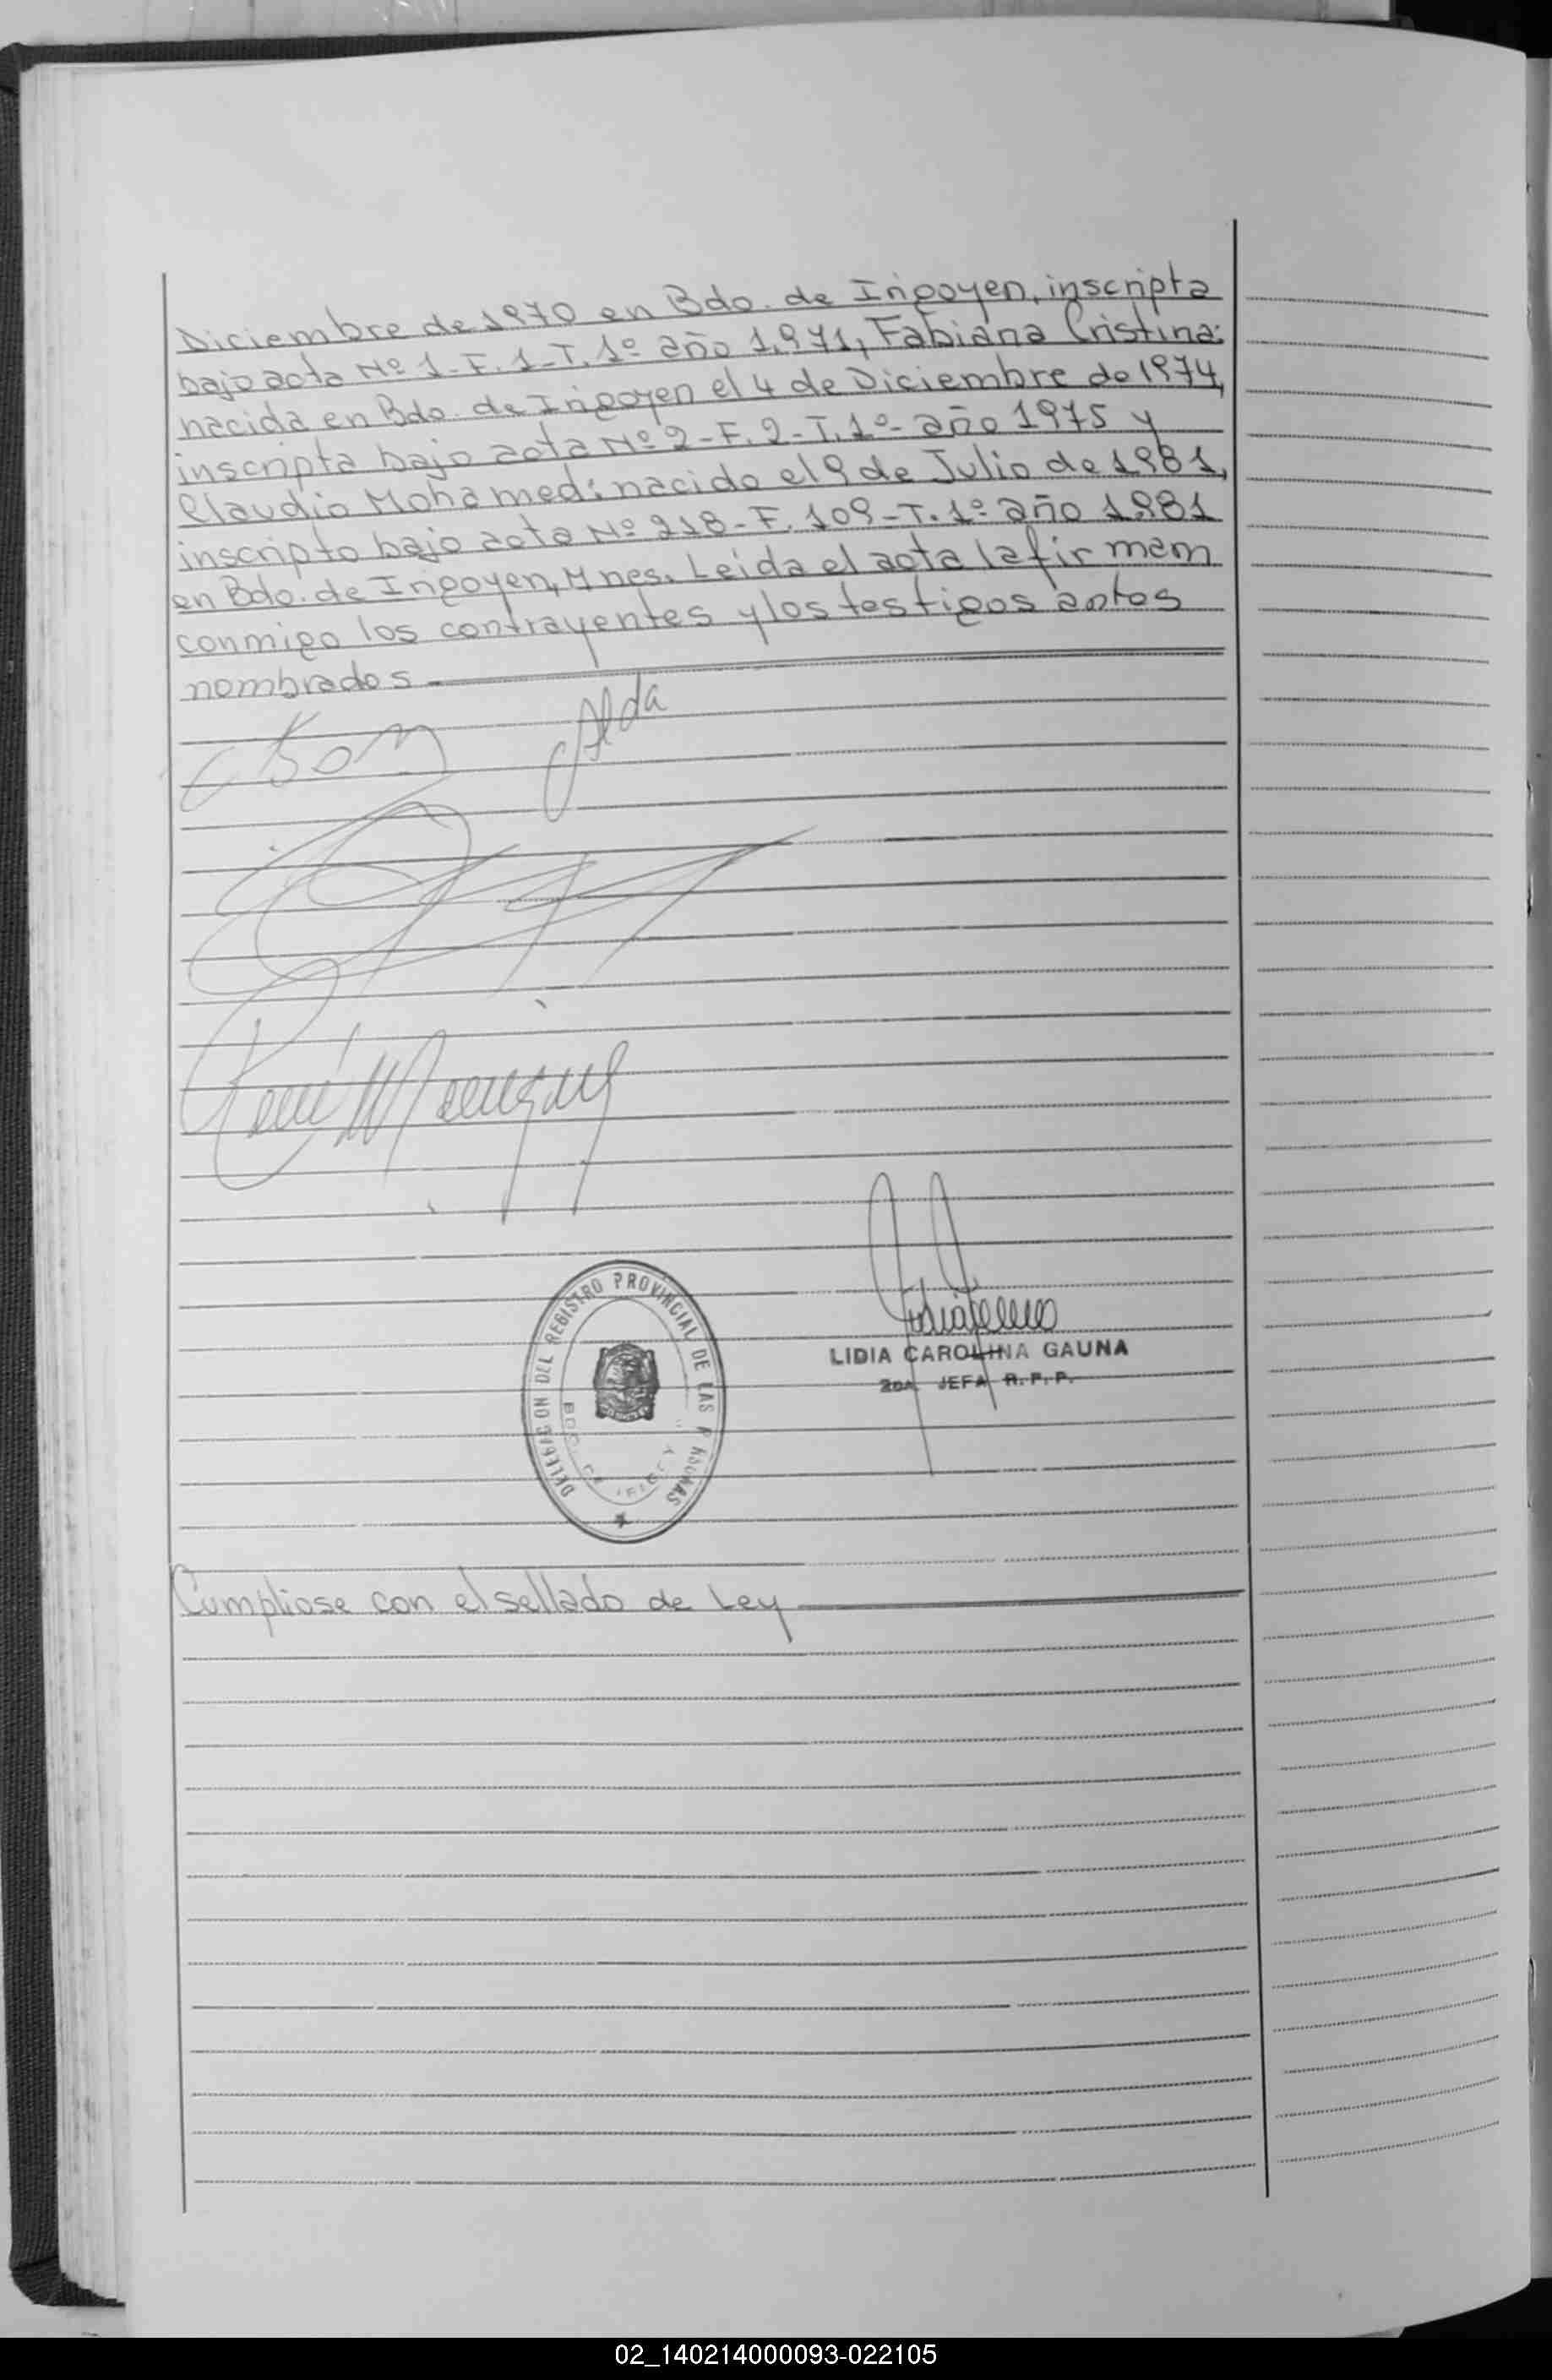 Diciembre de 1970 en Bdo. de Irigoyen, inscripta
bajo acta Nº 1-F. 1-T. 1º año 1.971, Fabiana Cristina:
nacida en Bdo. de Irigoyen el 4 de Diciembre de 1974,
inscripta bajo acta Nº 2-F. 2-T. 1º- año 1975 y
Claudio Mohamed: nacido el 9 de Julio de 1981,
inscripto bajo acta Nº 218-F. 109-T. 1º año 1981
en Bdo. de Irigoyen, Mnes. Leida el acta la firmam
conmigo los contrayentes y los testigos antes
nombrados
Alda
DELEGACION DEL REGISTRO PROVINCIAL DE LAS PERSONAS
LIDIA CAROLINA GAUNA
2DA. JEFA R. P. P.
Cumpliose con el sellado de Ley
02_140214000093-022105